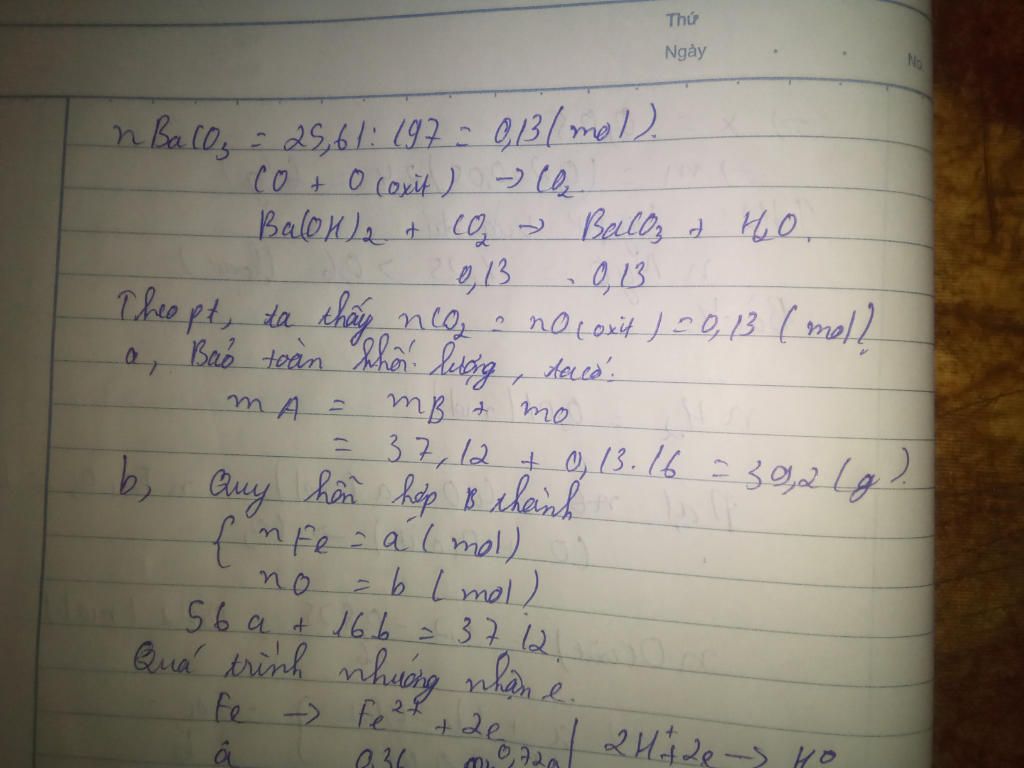 Thứ
Ngày
No
nBaCO3 = 25,61 : 197 = 0,13 (mol).
CO + O (oxit) → CO2
Ba(OH)2 + CO2 → BaCO3 + H2O.
0,13 0,13
Theo pt, ta thấy nCO2 = nO (oxit) = 0,13 (mol)
a, Bảo toàn khối lượng, ta có:
mA = mB + mO
= 37,12 + 0,13.16 = 39,2 (g).
b, Quy hỗn hợp B thành
{ nFe = a (mol)
nO = b (mol)
56a + 16b = 37,12.
Quá trình nhường nhận e.
Fe → Fe2+ + 2e | 2H+ + 2e →
a 0,36 0,72